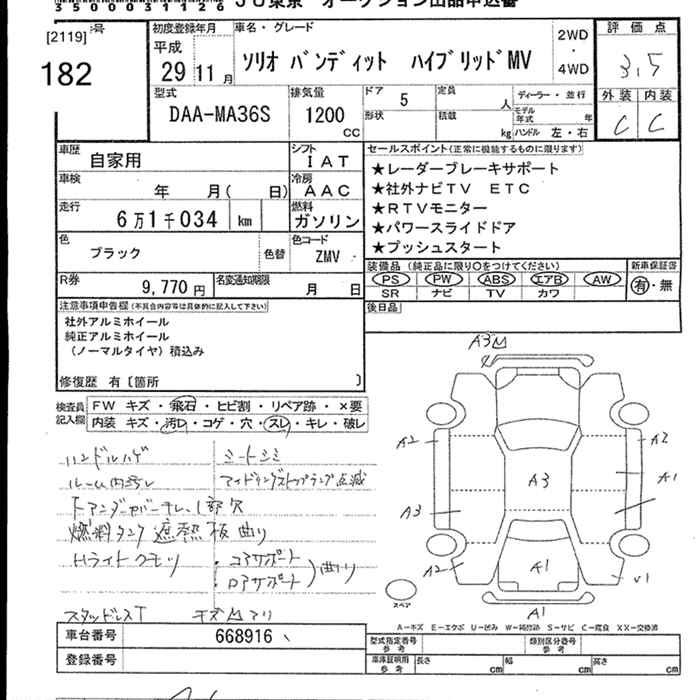 350003112 6
JU東京 オークション出品申込書
[2119] 号
182
初度登録年月
平成
29年 11月
車名・グレード
ソリオ バンディット ハイブリッドMV
2WD
・
4WD
評価点
3.5
外装 内装
C C
型式
DAA-MA36S
排気量
1200
cc
ドア 5
形状
定員 人
積載 kg
ディーラー・並行
モデル年式 年
ハンドル 左・右
車歴
自家用
シフト
IAT
車検
年 月( 日)
冷房
AAC
走行
6万1千034 km
燃料
ガソリン
色
ブラック
色替
色コード
ZMV
R券
9,770円
名変通知期限
月 日
セールスポイント(正常に機能するものに限ります)
★レーダーブレーキサポート
★社外ナビTV ETC
★RTVモニター
★パワースライドドア
★プッシュスタート
装備品 (純正品に限り○をつけてください)
PS PW ABS エアB AW
SR ナビ TV カワ
新車保証書
有・無
後日品
注意事項申告欄(不具合内容等は具体的に記入して下さい)
社外アルミホイール
純正アルミホイール
(ノーマルタイヤ)積込み
修復歴 有〔箇所 〕
検査員記入欄
FW キズ・飛石・ヒビ割・リペア跡・×要
内装 キズ・汚D・コゲ・穴・スレ・キレ・破レ
ハンドルハゲ
シートシミ
ルーム内汚レ
アイドリングストップランプ点滅
Fアンダーカバーキレ、1部欠
燃料タンク遮熱板曲り
Hライトクモリ
・コアサポート
・ロアサポート
)曲り
スタッドレスT
キズ凹アリ
A3凹
A2
A2
A3
A1
A3
A2
A1
V1
A1
スペア
A-キズ E-エクボ U-凹み W-補修跡 S-サビ C-腐食 XX-交換済
車台番号
668916
登録番号
型式指定番号 参考
類別区分番号 参考
車庫証明用 参考
長さ cm
幅 cm
高さ cm